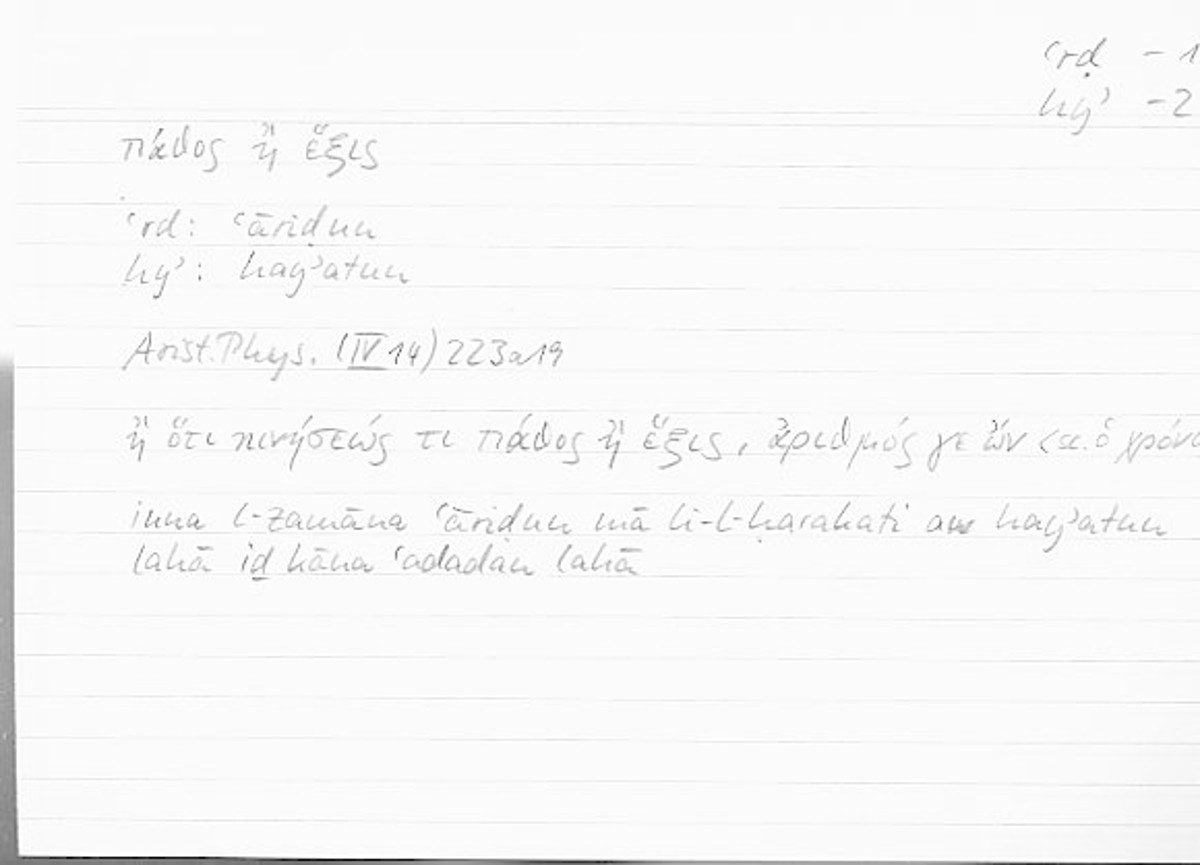 ʿrḍ – 1
hyʾ – 2
πάθος ἢ ἕξις
ʿrḍ: ʿāriḍun
hyʾ: hayʾatun
Arist. Phys. (IV 14) 223a19
ἢ ὅτι κινήσεώς τι πάθος ἢ ἕξις, ἀριθμός γε ὤν <sc. ὁ χρόνο
inna l-zamāna ʿāriḍun mā li-l-ḥarakati aw hayʾatun
lahā iḏ kāna ʿadadan lahā